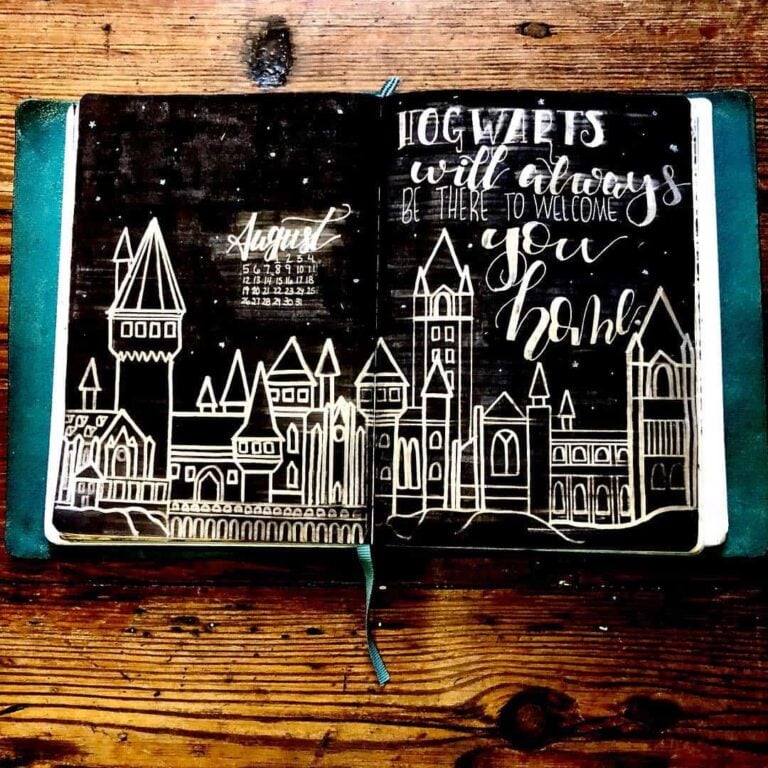 August
1 2 3 4
5 6 7 8 9 10 11
12 13 14 15 16 17 18
19 20 21 22 23 24 25
26 27 28 29 30 31
HOGWARTS
will always
BE THERE TO WELCOME
you
home.